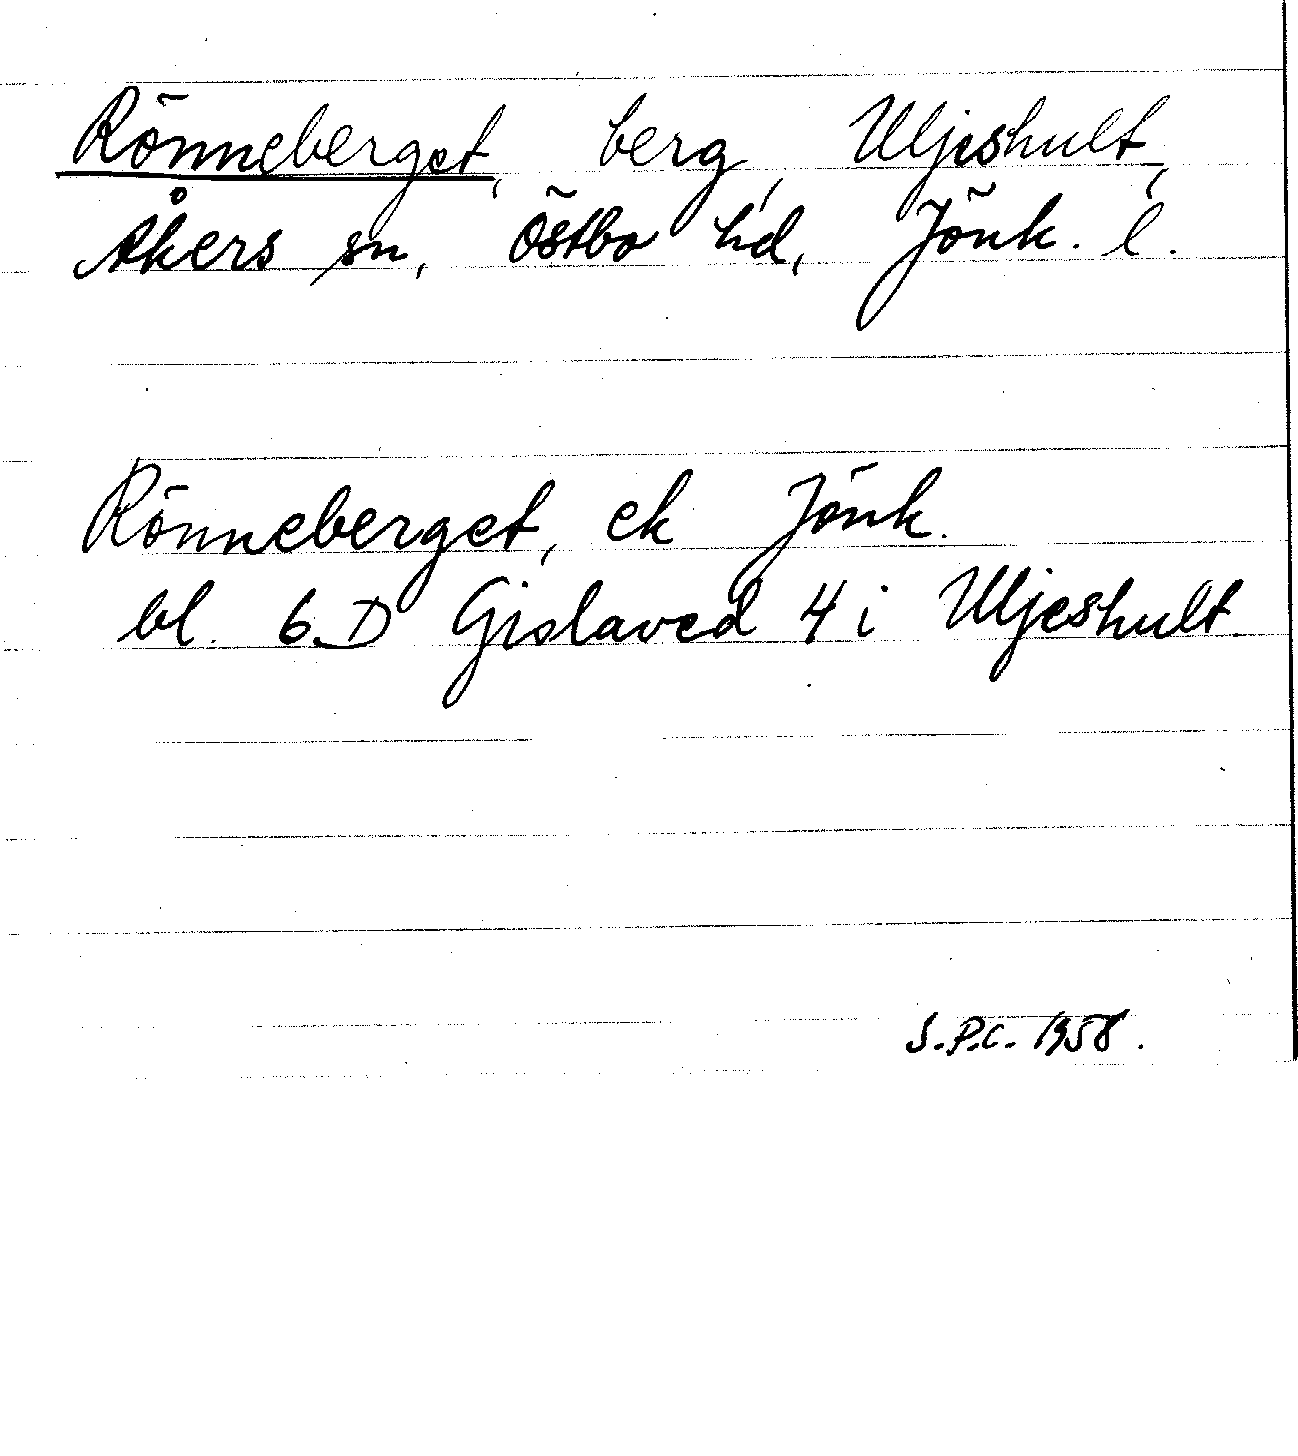 Rönneberget, berg, Uljeshult,
Åkers sn, Östbo hd, Jönk. l.
Rönneberget, ek Jönk.
bl. 6 D Gislaved 4 i Uljeshult.
S.P.C. 1958.